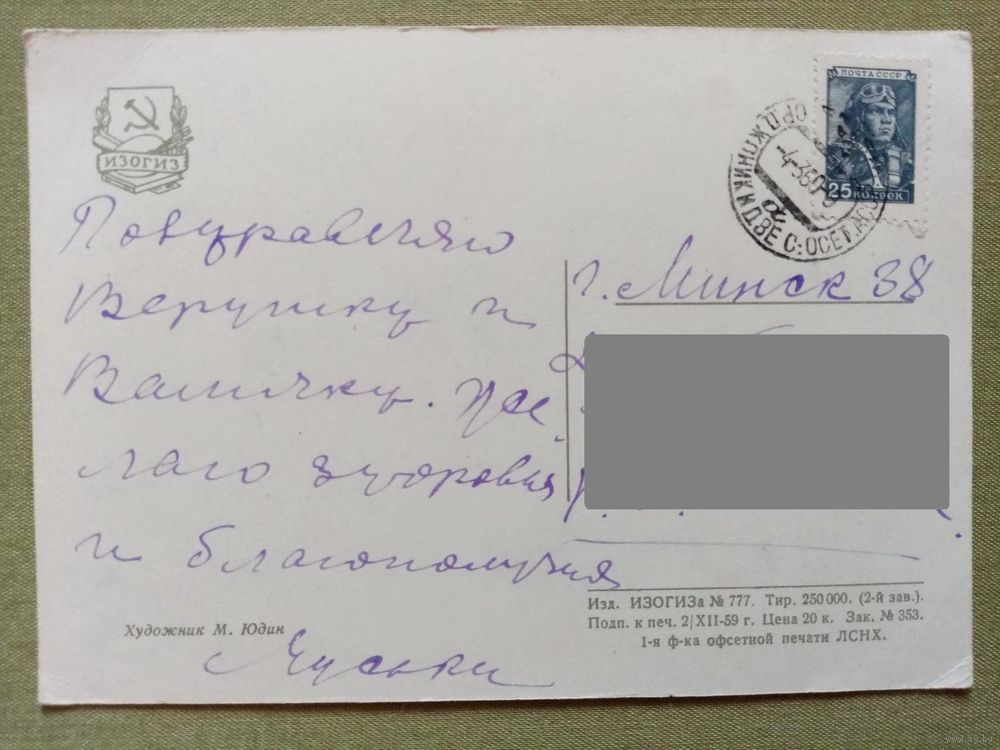 ИЗОГИЗ
ПОЧТА СССР
25 КОПЕЕК
ОРДЖОНИКИДЗЕ С. ОСЕТ.
-4360-
Поздравляю
Верушку и
Валичку. Же
лаю здоровья
и благополучия
г. Минск 38
Художник М. Юдин
Изд. ИЗОГИЗа № 777. Тир. 250 000. (2-й зав.).
Подп. к печ. 2/XII-59 г. Цена 20 к. Зак. № 353.
1-я ф-ка офсетной печати ЛСНХ.
www.ay.by